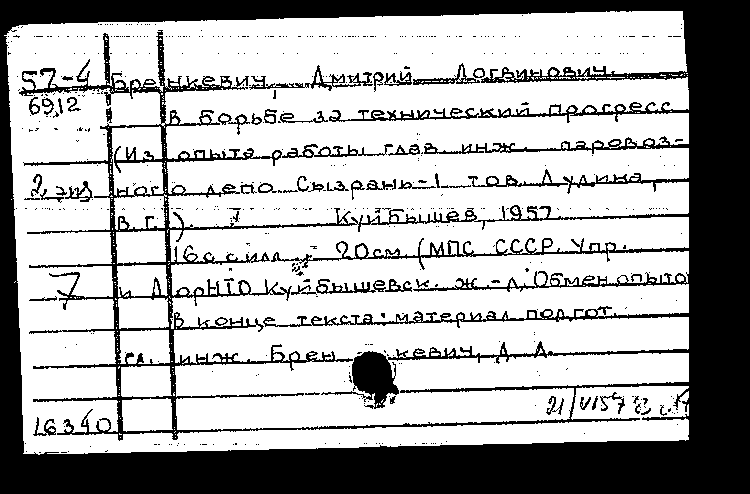 57-4 Бренкевич, Дмитрий Логвинович.
6912 В борьбе за технический прогресс
(Из опыта работы глав. инж. паровоз-
2 экз ного депо Сызрань-1 тов. Лудина,
В. Г.). Куйбышев, 1957.
16 с. с илл.; 20 см. (МПС СССР. Упр.
7 и ДорНТО Куйбышевск. ж.-д. Обмен опытом
В конце текста: материал подгот.
гл. инж. Бренкевич, Д. Л.
16340 21/VI57